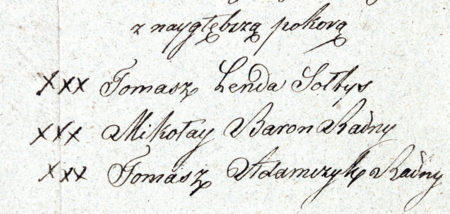 z naygłębszą pokorą
xxx Tomasz Lenda Sołtys
xxx Mikołay Baron Radny
xxx Tomasz Adamczyk Radny